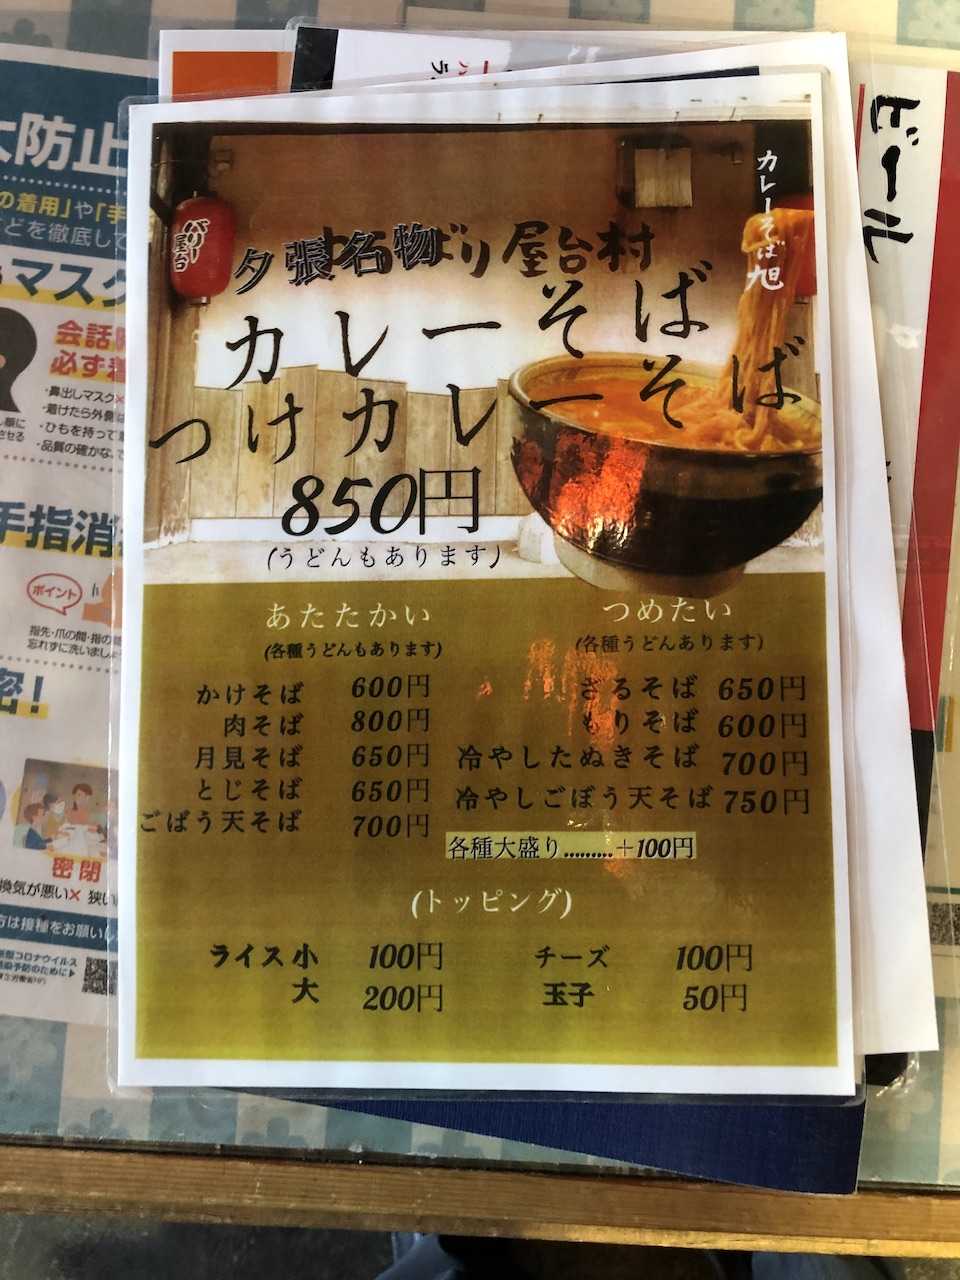 ビール
大防止
の着用」や「手
どを徹底して
マスク
会話
必ず着
・鼻出しマスク×
・着けたら外側は
・ひもを持って着
・品質の確かな、で
手指消
ポイント
指先・爪の間・指の間
忘れずに洗いましょ
密!
密閉
換気が悪い× 狭い
方は接種をお願いし
カレーそば 旭
バリー屋台
夕張名物
ばり屋台村
カレーそば
つけカレーそば
850円
(うどんもあります)
あたたかい
(各種うどんもあります)
かけそば 600円
肉そば 800円
月見そば 650円
とじそば 650円
ごぼう天そば 700円
つめたい
(各種うどんあります)
ざるそば 650円
もりそば 600円
冷やしたぬきそば 700円
冷やしごぼう天そば 750円
各種大盛り.........+100円
(トッピング)
ライス小 100円
大 200円
チーズ 100円
玉子 50円